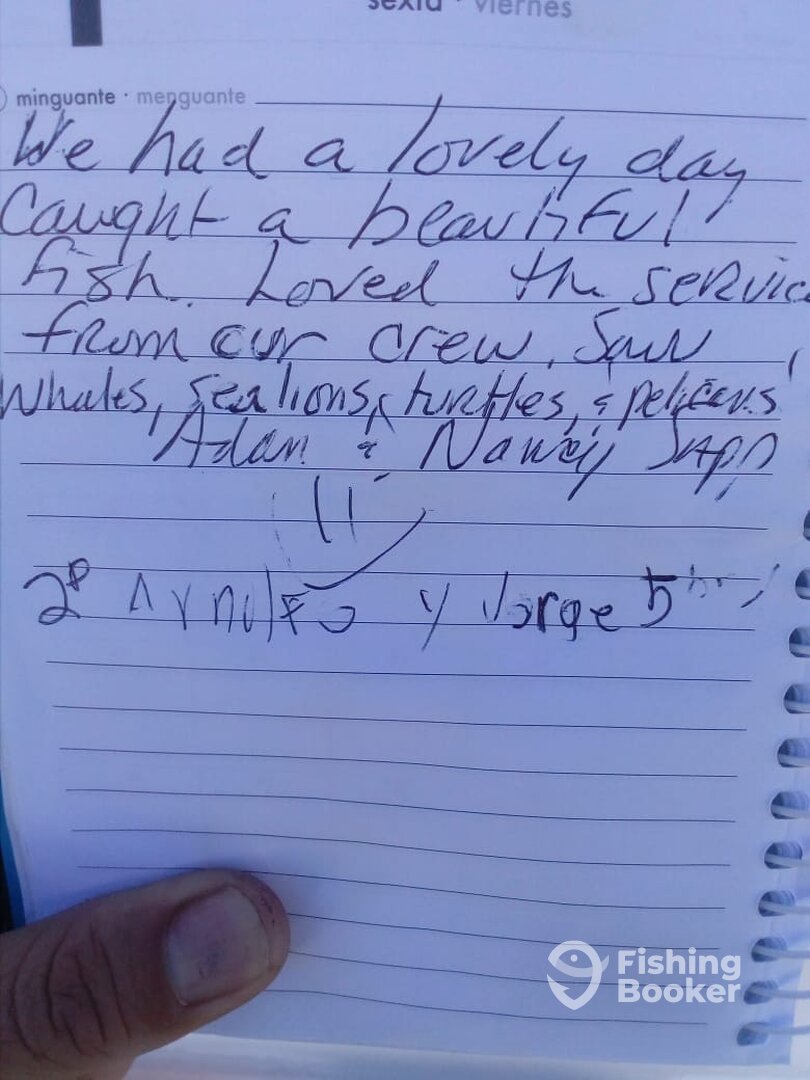 sexta · viernes
minguante · menguante
We had a lovely day
Caught a beautiful
fish. Loved the service
from our crew. Saw
whales, sea lions, turtles, & pelicans
Adam & Nancy Sapp
2P Arnulfo y Jorge 5
Fishing
Booker